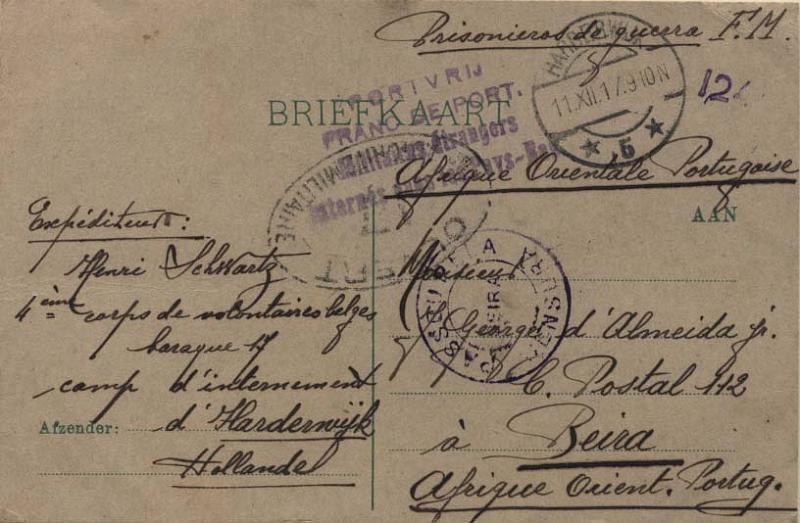 Prisonieros de guerra F.M.
HARDERWIJK
11.XII.17.9-10N
5
12
PORTVRIJ
FRANC DE PORT.
Militaires étrangers
internés aux Pays-Bas
BRIEFKAART
Afrique Orientale Portugaise
AAN
MILITAIRE
CENSURA
BEIRA
Expéditeur:
Henri Schwartz
4ème corps de volontaires belges
baraque 17
camp d'internement
Afzender: d'Harderwijk
Hollande
Monsieur
Georges d'Almeida jr.
C. Postal 112
à Beira
Afrique Orient. Portug.